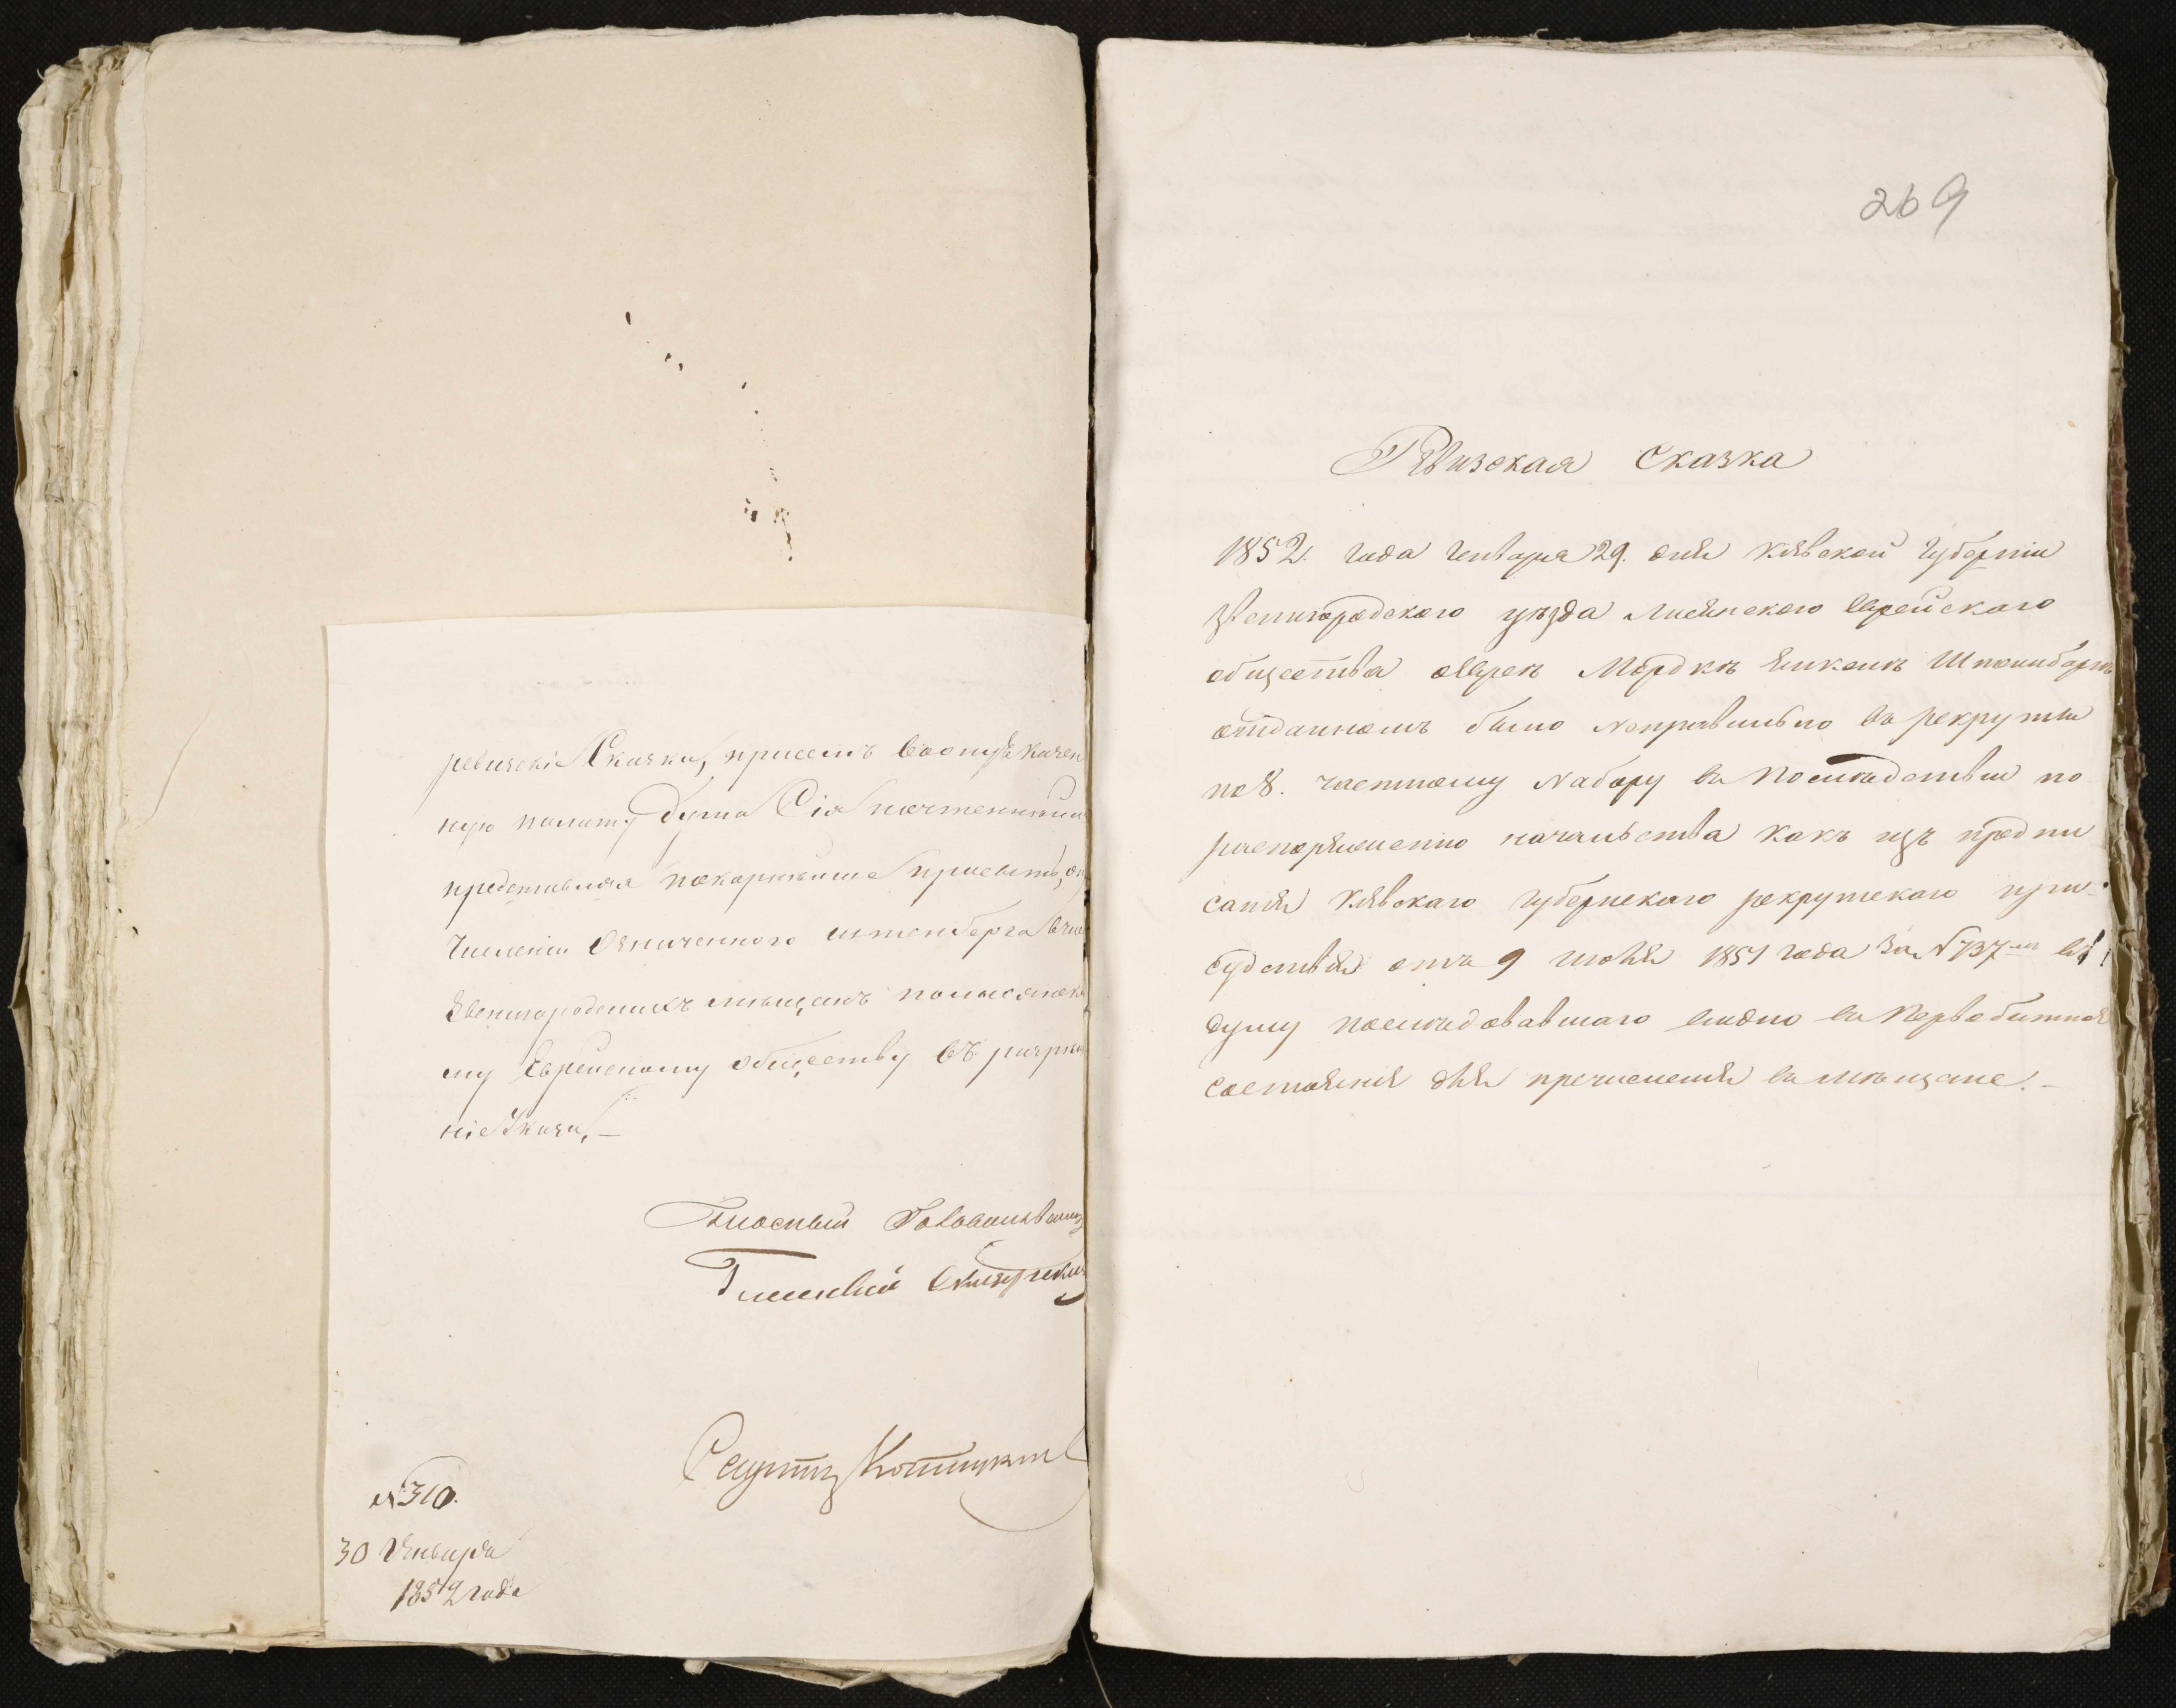 ревизскiе Сказки, присемъ вооную Казен
ную палату Дума Сiя почтеннѣйше
представляя покорнѣйше проситъ, о
числении Означенного штенберга вчис
Звенигородскихъ мѣщанъ полисянск
му Еврейскому обществу въ разрѣше
нiе Указа, —
Гласный
Гласный
Секретарь
№ 310.
30 Января
1852 года
269
Ревизская Сказка
1852. года Генваря 29. дня Кіевской Губерніи
Звенигородского уѣзда Лисянского Еврейского
общества о Еврее Мордкѣ Шпенибаргѣ
отданномъ было неправильно въ рекруты
по 8. частному Набору въ Послѣдствіи по
распоряженію начальства какъ изъ предпи
санія Кіевскаго Губернскаго рекрутскаго при-
судствія отъ 9 1851 года за № 737 въ
думу послѣдовавшаго видно въ Первобитное
состоянiя для причисленія въ мѣщане. —